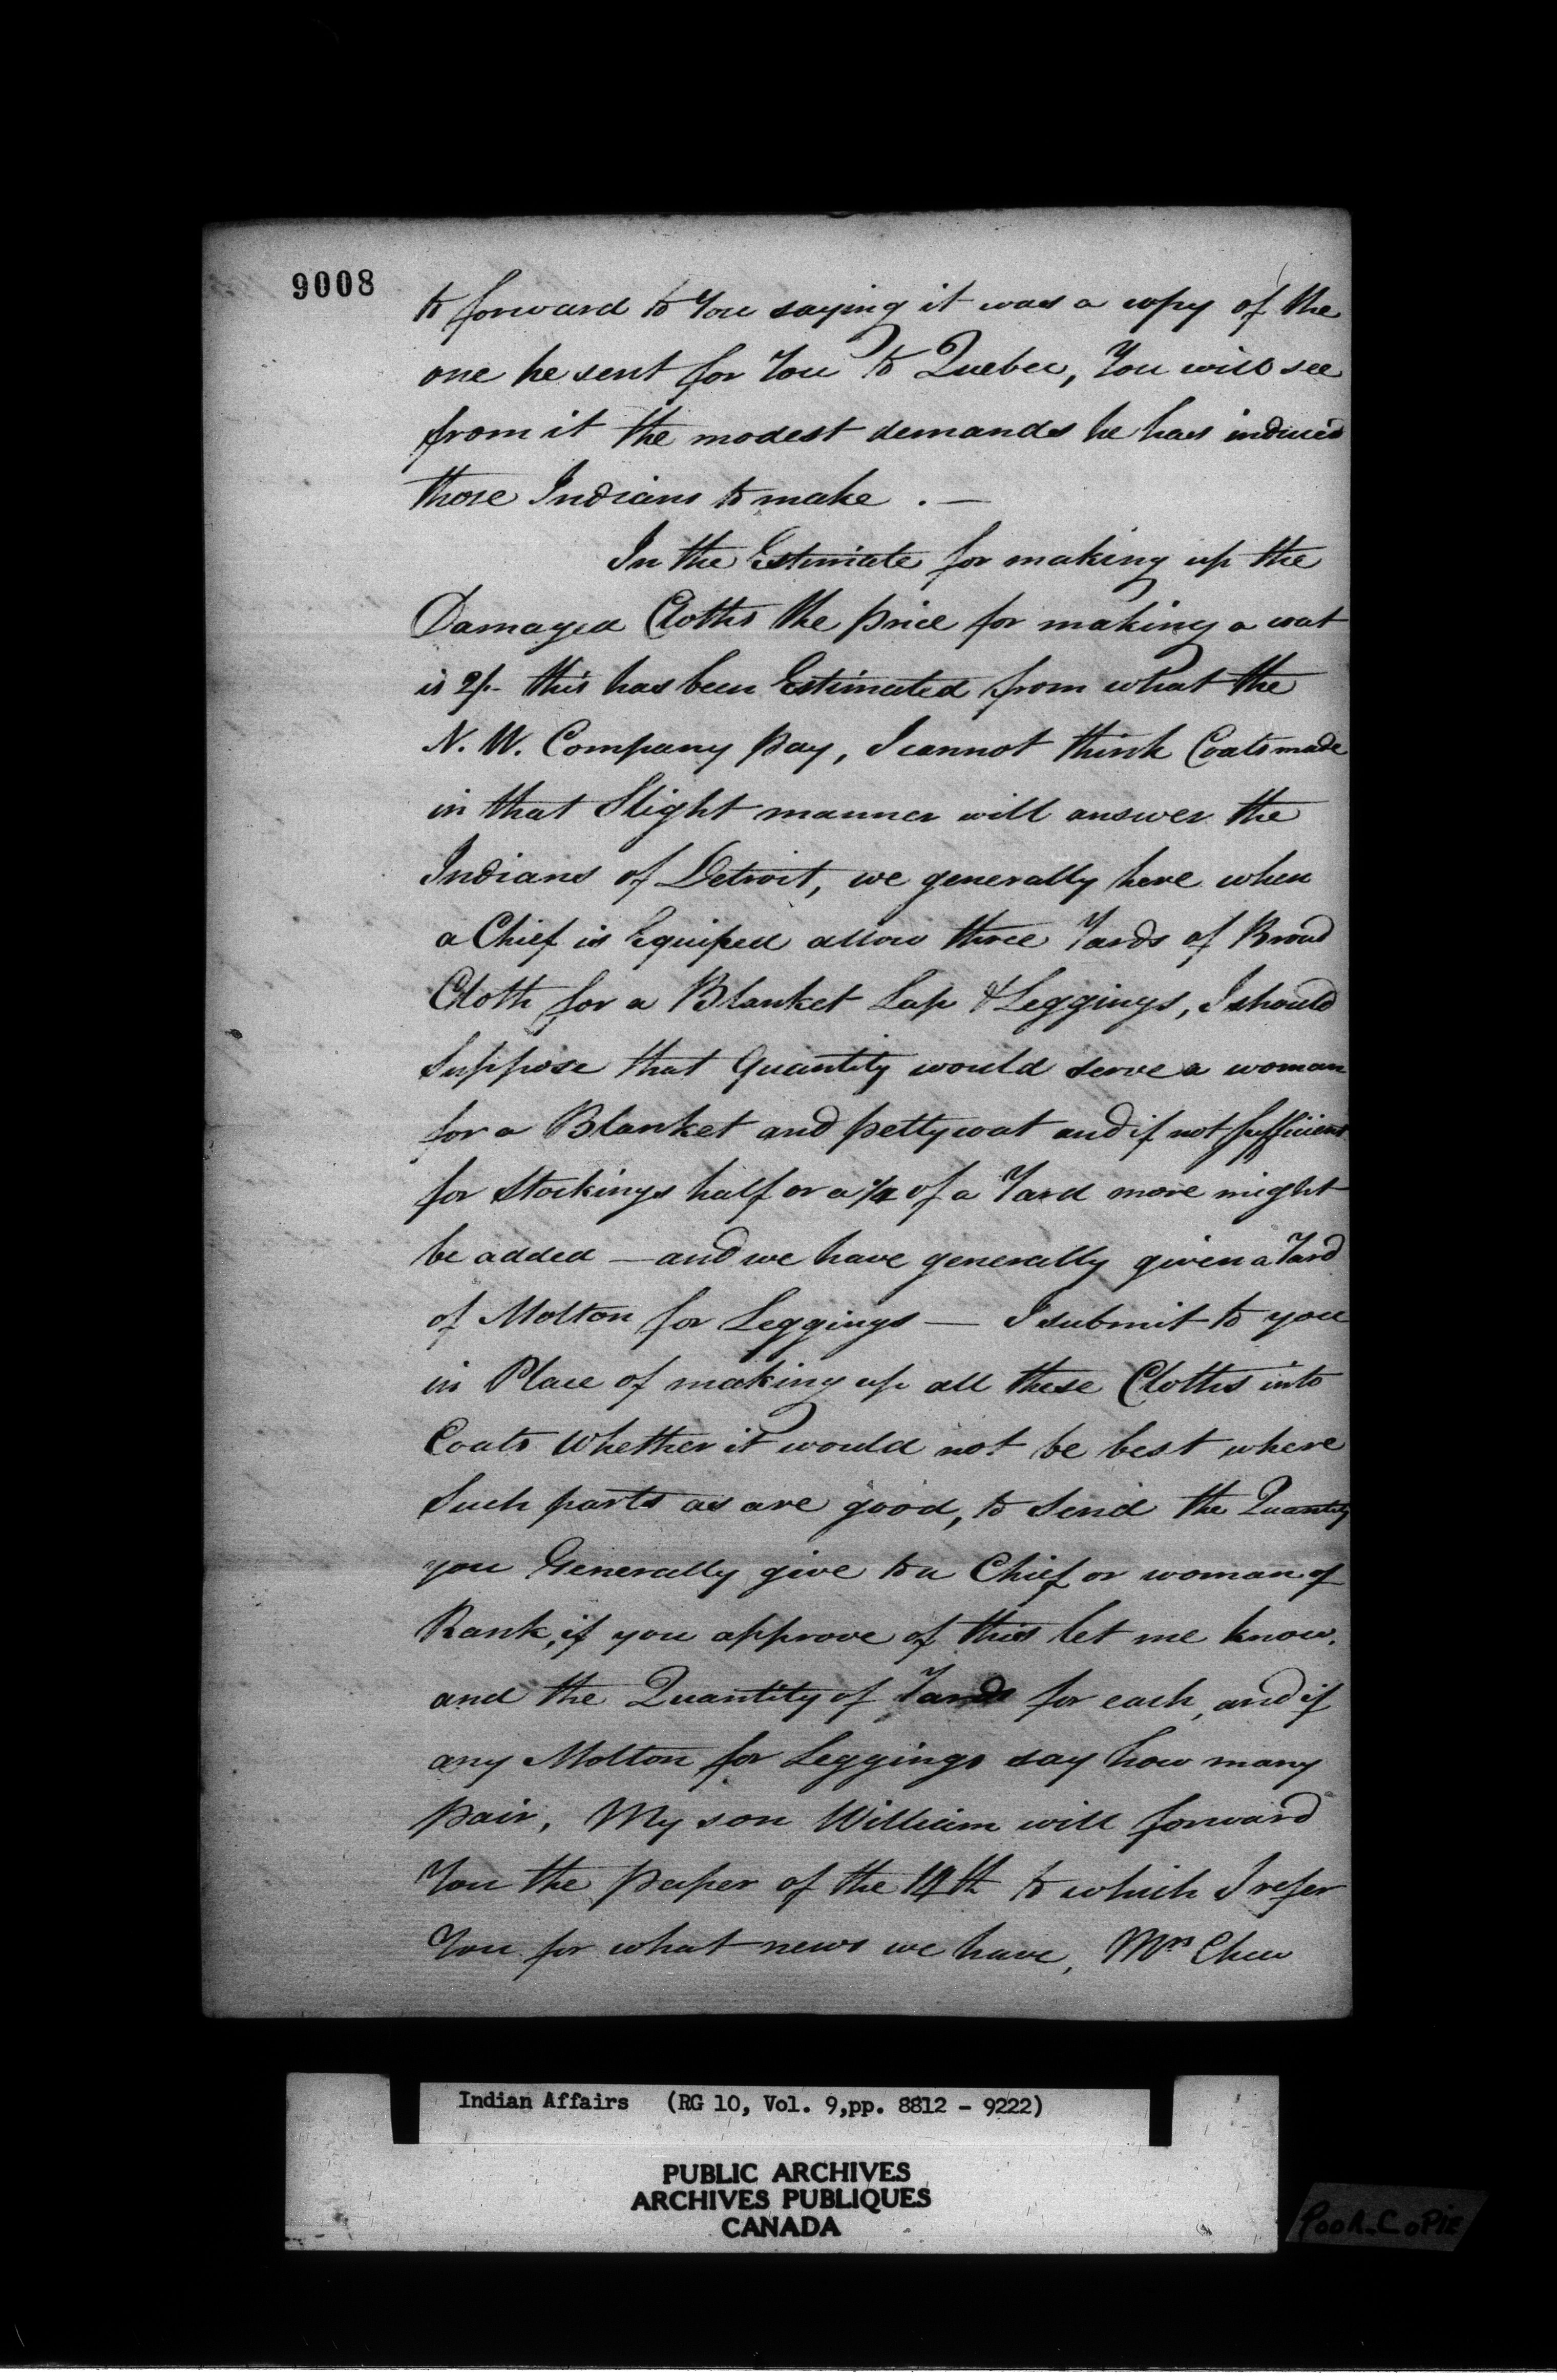 9008
to forward to You saying it was a copy of the
one he sent for You to Quebec, You will see
from it the modest demands he has induced
those Indians to make . —
In the Estimate for making up the
Damaged Cloths the price for making a coat
is 2/- this has been Estimated from what the
N. W. Company pay, I cannot think Coats made
in that Slight manner will answer the
Indians of Detroit, we generally here when
a Chief is Equiped allow three Yards of Broad
Cloth for a Blanket Lap & Leggings, I should
Suppose that Quantity would serve a woman
for a Blanket and pettycoat and if not sufficient
for Stockings half or a 1/4 of a Yard more might
be added — and we have generally given a Yard
of Molton for Leggings — I submit to you
in Place of making up all these Cloths into
Coats Whether it would not be best where
Such parts as are good, to Send the Quantity
you Generally give to a Chief or woman of
Rank, if you approve of this let me know.
and the Quantity of Yards for each, and if
any Molton for Leggings say how many
pair, My son William will forward
You the paper of the 14th to which I refer
You for what news we have, Mrs Chew
Indian Affairs (RG 10, Vol. 9,pp. 8812 - 9222)
PUBLIC ARCHIVES
ARCHIVES PUBLIQUES
CANADA
POOR COPIE